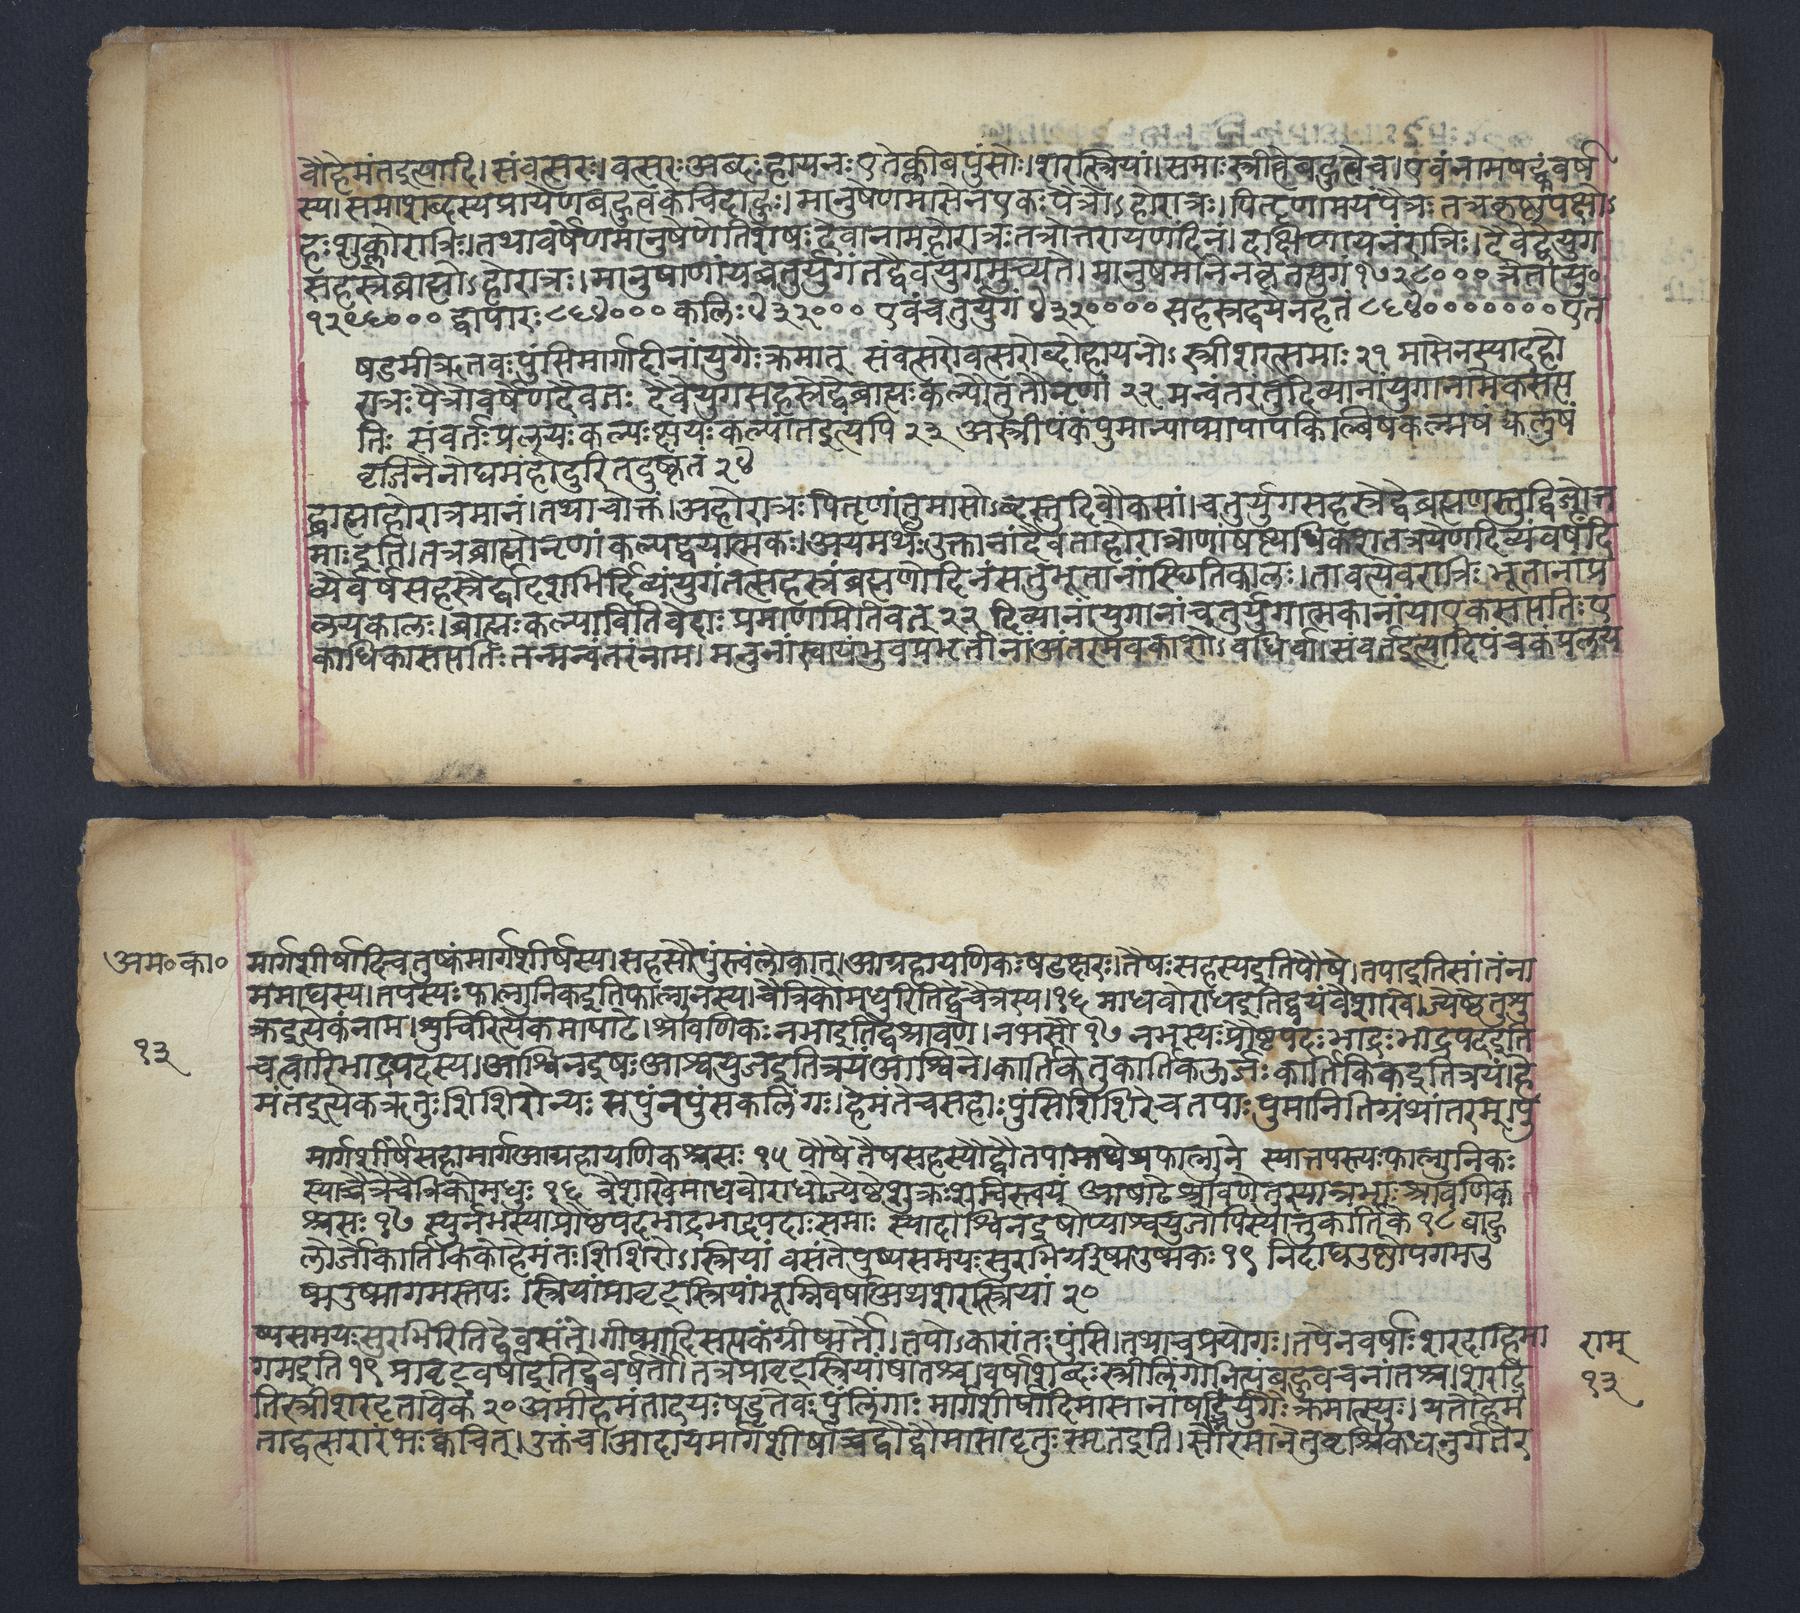 वौहेमंतइत्यादि। संवत्सरः। वत्सरः अब्दः हायनः एतेक्लीबपुंसोः। शरत्स्त्रियां। समाः स्त्रीत्वेबहुत्वेच। एवंनामषट्कंवर्ष
स्य। समाशब्दस्यप्रायेणबहुत्वंकेचिदाहुः। मानुषेणमासेनएकः पैत्रोऽहोरात्रः। पितॄणामयंपैत्रः तत्रकृष्णपक्षोऽ
हः शुक्लोरात्रिः। तथावर्षेणमानुषेणेतिशेषः दैवानामहोरात्रः तत्रोत्तरायणंदिनं। दक्षिणायनंरात्रिः। दैवेद्वेयुग
सहस्रेब्राह्मोऽहोरात्रः। मानुषाणांयच्चतुर्युगंतद्दैवंयुगमुच्यते। मानुषमानेनकृतयुगं १७२८००० त्रेतायु०
१२९६००० द्वापारः ८६४००० कलिः ४३२००० एवंचतुर्युगं ४३२०००० सहस्रद्वयेनहतं ८६४००००००० एत
षडमीऋतवः पुंसिमार्गादीनांयुगैः क्रमात् संवत्सरोवत्सरोब्दोहायनोऽस्त्रीशरत्समाः २१ मासेनस्यादहो
रात्रः पैत्रोवर्षेणदैवतः दैवेयुगसहस्रेद्वेब्राह्मः कल्पौतुतौनृणां २२ मन्वंतरंतुदिव्यानांयुगानामेकसप्त
तिः संवर्तः प्रलयः कल्पः क्षयः कल्पांतइत्यपि २३ अस्त्रीपंकंपुमान्पाप्मापापंकिल्बिषकल्मषं कलुषं
वृजिनैनोघमंहोदुरितदुष्कृतं २४
द्ब्राह्माहोरात्रमानं। तथाचोक्तं। अहोरात्रः पितृणांतुमासोऽब्दस्तुदिवौकसां। चतुर्युगसहस्रेद्वेब्रह्मणस्तुद्विजोत्त
माः इति। तत्रब्राह्मोनृणांकल्पद्वयात्मकः। अयमर्थः उक्तानांदैवताहोरात्राणांषष्ट्यधिकशतत्रयेणदिव्यंवर्षंदि
व्यैर्वर्षसहस्रैर्द्वादशभिर्दिव्यंयुगंतत्सहस्रंब्रह्मणोदिनंसतुभूतानांस्थितिकालः। तावत्येवरात्रिः भूतानांप्र
लयकालः। ब्राह्मः कल्पावितिवेदाः प्रमाणमितिवत् २२ दिव्यानांयुगानांचतुर्युगात्मकानांयाएकसप्ततिः ए
काधिकासप्ततिः तन्मन्वंतरंनाम। मनुनांस्वायंभुवप्रभृतीनांअंतरमवकाशोऽवधिर्वा। संवर्तइत्यादिपंचकंप्रलय
अम०का०
१३
मार्गशीर्षादिचतुष्कंमार्गशीर्षस्य। सहसोपुंस्त्वंलोकात्। आग्रहायणिकः षडक्षरः। तैषः सहस्यइतिपौषे। तपाइतिसांतंना
ममाघस्य। तपस्यः फाल्गुनिकइतिफाल्गुनस्य। चैत्रिकोमधुरितिद्वेचैत्रस्य। १६ माधवोराधइतिद्वयंवैशाखे। ज्येष्ठेतुशु
क्रइत्येकंनाम। शुचिरित्येकमाषाढे। श्रावणिकः नभाइतिद्वेश्रावणे। नभसो १७ नभस्यः प्रौष्ठपदः भाद्रः भाद्रपदइति
चत्वारिभाद्रपदस्य। आश्विनइषः आश्वयुजइतित्रयंआश्विने। कार्तिकेतुकार्तिकऊर्जः कार्तिकिकइतित्रयं। हे
मंतइत्येकऋतुः शिशिरोन्यः सपुंनपुंसकलिंगः। हेमंतेचसहाः पुंसिशिशिरेचतपाः पुमानितिग्रंथांतरम्। पु
मार्गशीर्षेसहामार्गआग्रहायणिकश्चसः १५ पौषेतैषसहस्यौद्वौतपामाघेथफाल्गुने स्यात्तपस्यः फाल्गुनिकः
स्याच्चैत्रेचैत्रिकोमधुः १६ वैशाखेमाधवोराधोज्येष्ठेशुक्रः शुचिस्त्वयं आषाढेश्रावणेतुस्यान्नभाः श्रावणिक
श्चसः १७ स्युर्नभस्यप्रौष्ठपदभाद्रभाद्रपदाः समाः स्यादाश्विनइषोप्याश्वयुजोपिस्यात्तुकार्तिके १८ बाहु
लोर्जौकार्तिकिकोहेमंतः शिशिरोऽस्त्रियां वसंतेपुष्पसमयः सुरभिर्ग्रीष्मउष्मकः १९ निदाघउष्णोपगमउ
ष्मउष्मागमस्तपः स्त्रियांप्रावृट्स्त्रियांभूम्निवर्षाअथशरत्स्त्रियां २०
ष्पसमयः सुरभिरितिद्वेवसंते। ग्रीष्मादिसप्तकंग्रीष्मर्तौ। तपोऽकारांतः पुंसि। तथाचप्रयोगः। तपेनवर्षाः शरदाहिमा
गमइति १९ प्रावृट्वर्षाइतिद्वेवर्षर्तौ। तत्रप्रावृट्स्त्रियांषांतश्च। वर्षाशब्दः स्त्रीलिंगोनित्यंबहुवचनांतश्च। शरदि
तिस्त्रीशरदृतावेकं २० अमीहेमंतादयः षडृतवः पुंलिंगाः मार्गशीर्षादिमासानांषड्भिर्युगैः क्रमात्स्युः। यतोहेमं
ताद्वत्सरारंभः क्वचित्। उक्तंच। आदायमार्गशीर्षाच्चद्वौद्वौमासावृतुः स्मृतइति। सौरमानेतुवृश्चिकधनुर्गतेर
राम्
१३